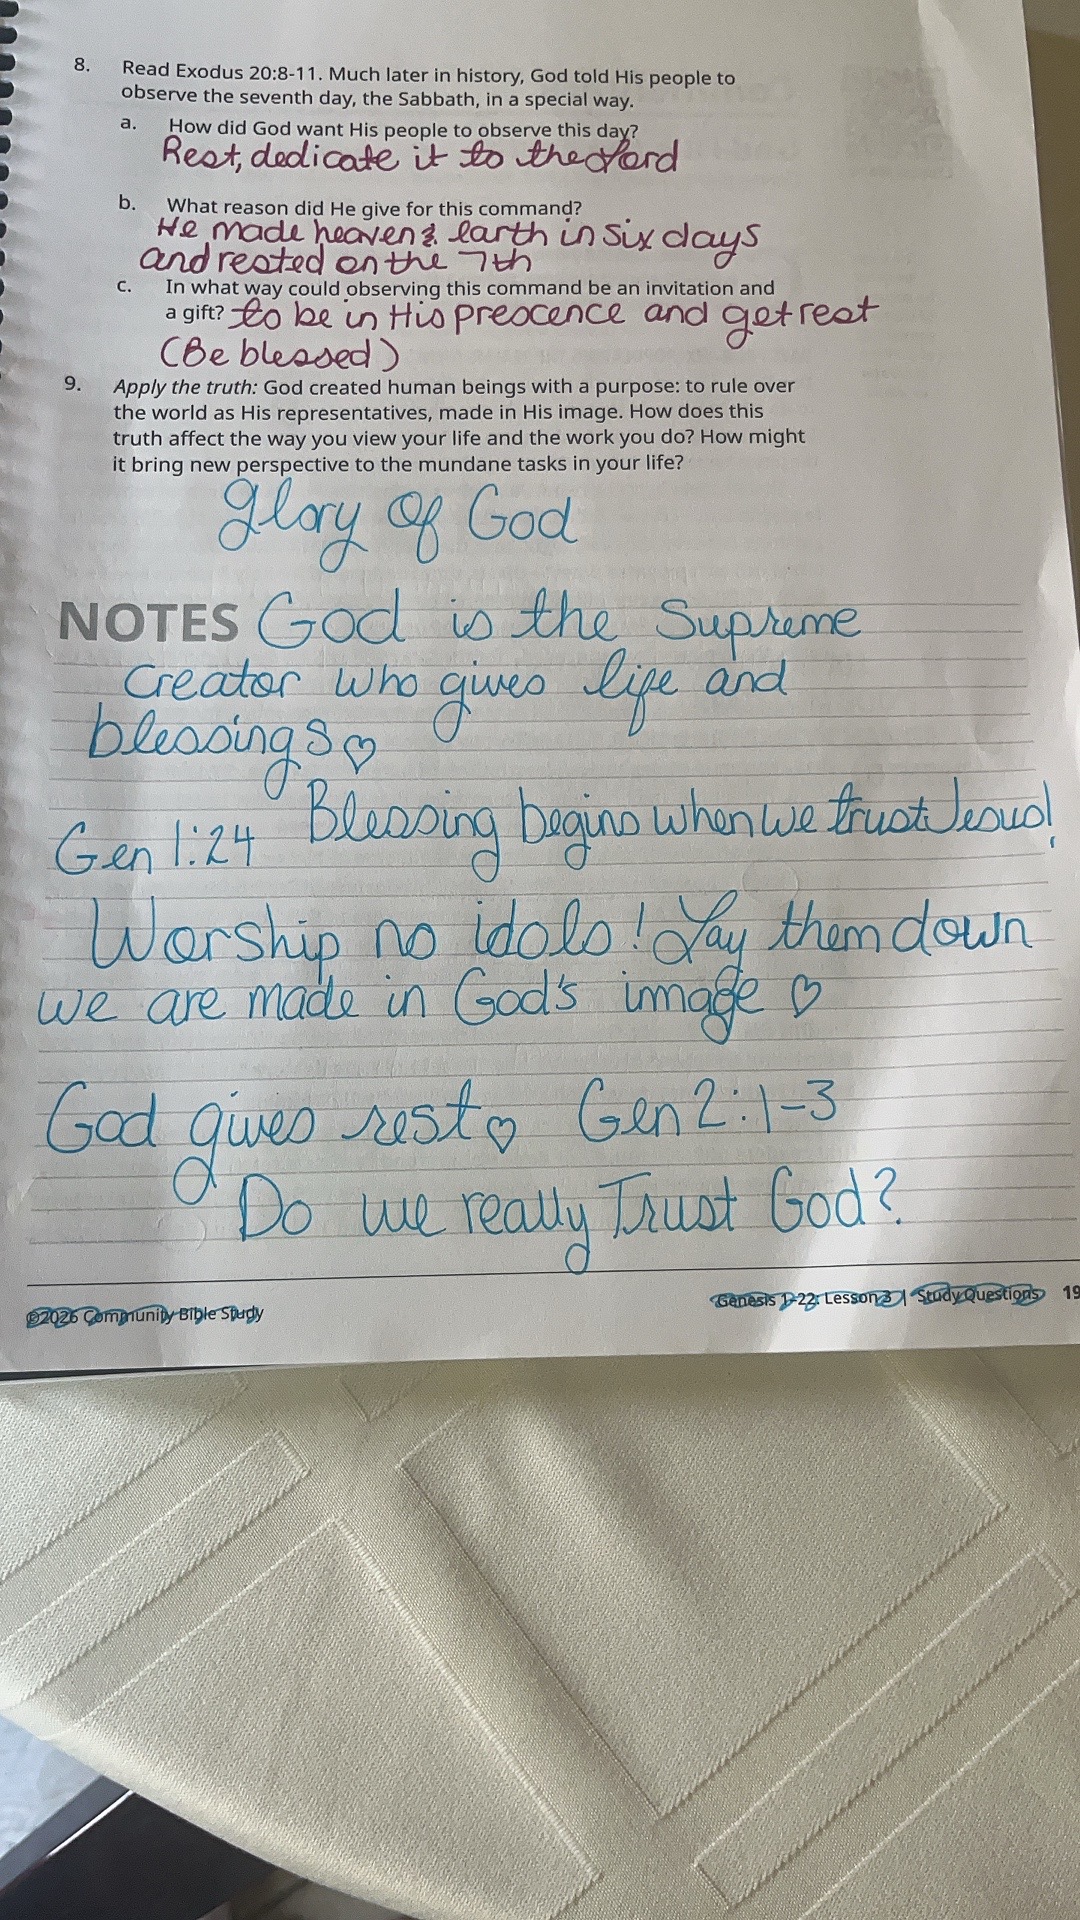 8. Read Exodus 20:8-11. Much later in history, God told His people to
observe the seventh day, the Sabbath, in a special way.
a. How did God want His people to observe this day?
Rest, dedicate it to the Lord
b. What reason did He give for this command?
He made heaven & earth in six days
and rested on the 7th
c. In what way could observing this command be an invitation and
a gift? to be in His prescence and get rest
(Be blessed)
9. Apply the truth: God created human beings with a purpose: to rule over
the world as His representatives, made in His image. How does this
truth affect the way you view your life and the work you do? How might
it bring new perspective to the mundane tasks in your life?
glory of God
NOTES God is the Supreme
Creator who gives life and
blessings ♡
Blessing begins when we trust Jesus!
Gen 1:24
Worship no idols! Lay them down
we are made in God's image ♡
God gives rest ♡ Gen 2:1-3
Do we really Trust God?
©2026 Community Bible Study
Genesis 1-22: Lesson 3 | Study Questions 19